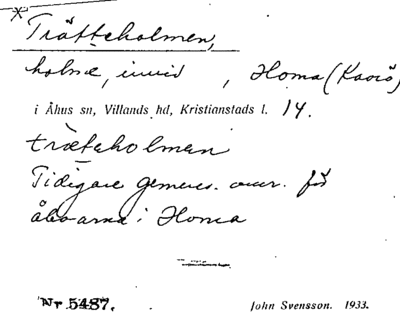 Trätteholmen,
holme, invid , Homa (Kaviö)
i Åhus sn, Villands hd, Kristianstads l. 14.
træteholmen
Tidigare gemens. för
åboarna i Homa
Nr 5487.
John Svensson. 1933.